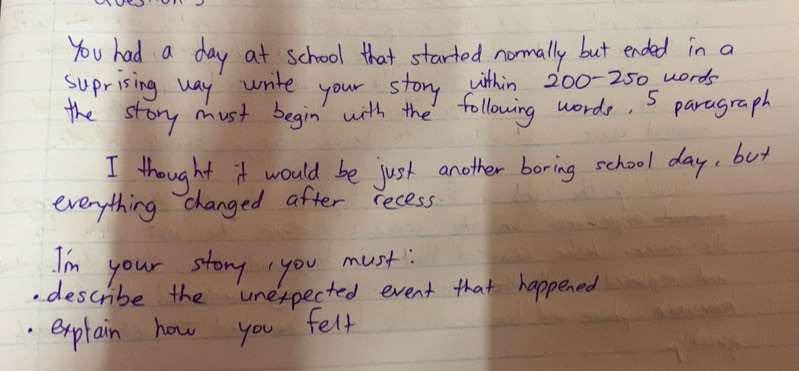 You had a day at school that started normally but ended in a
suprising way write your story within 200-250 words
the story must begin with the following words. 5 paragraph
I thought it would be just another boring school day, but
everything changed after recess
In your story, you must:
• describe the unexpected event that happened
• explain how you felt